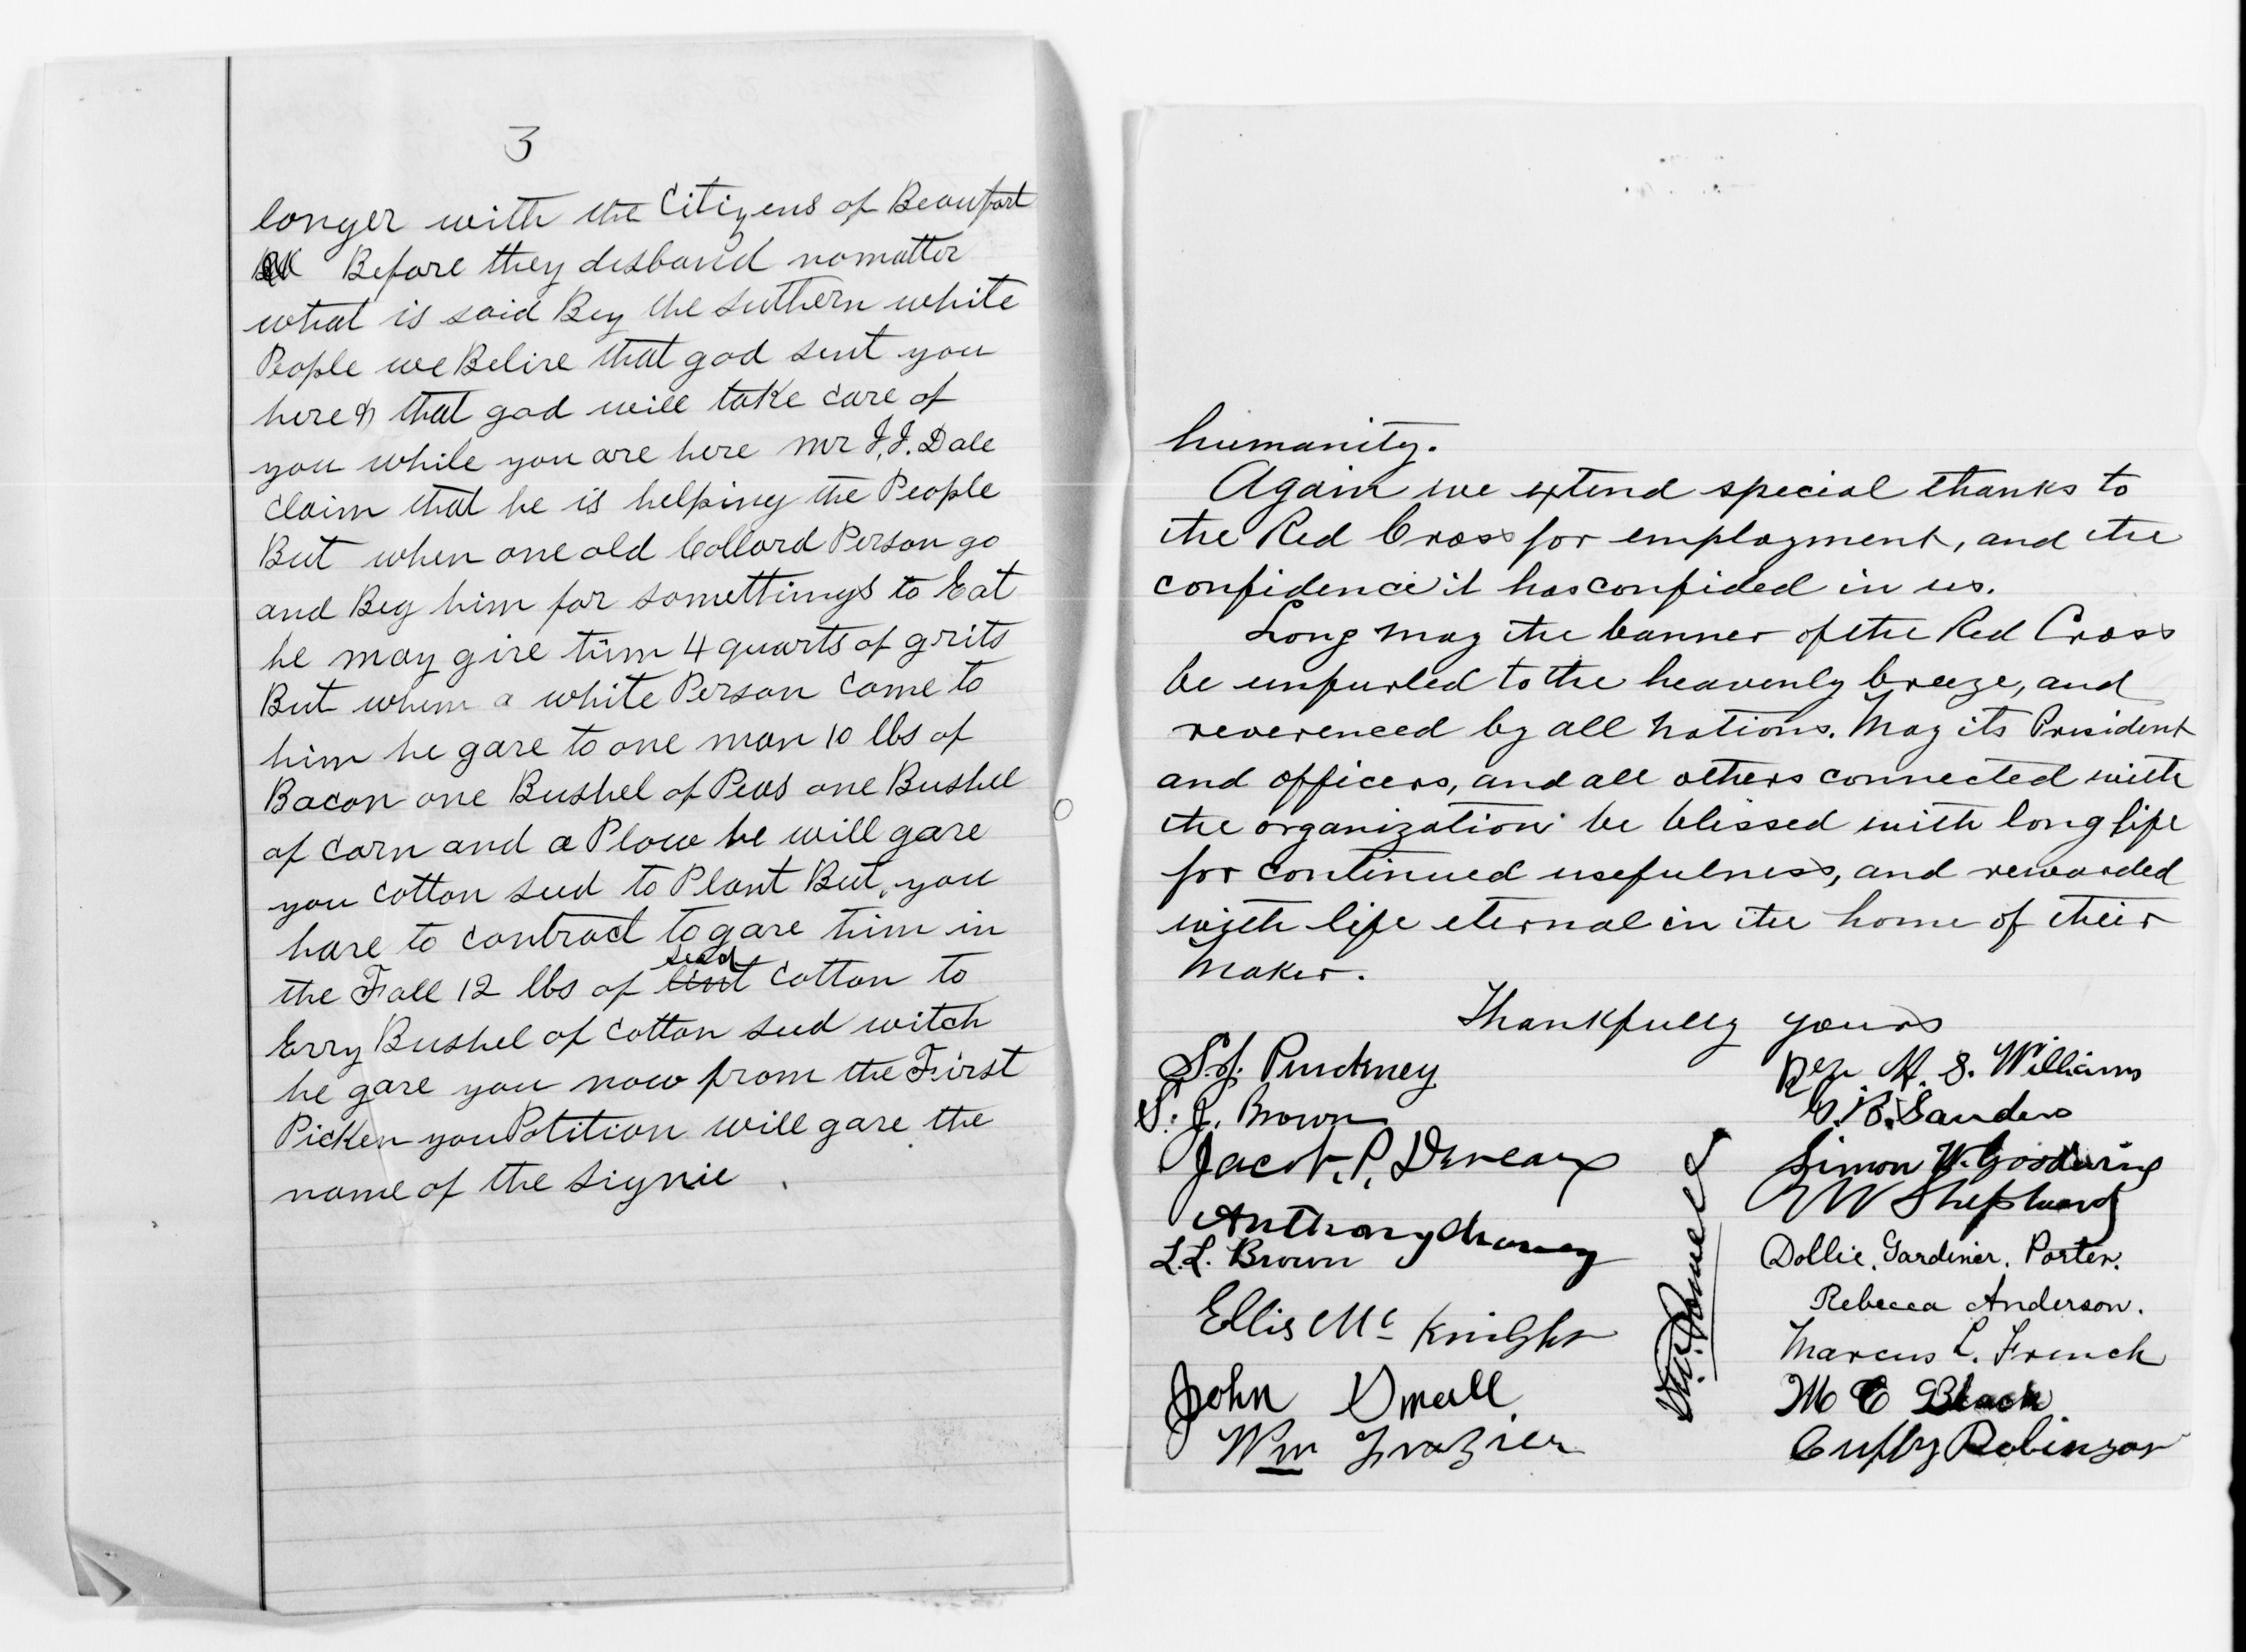 3
longer with the Citizens of Beaufort
Before they desband nomatter
what is said Bey the suthern white
People we Belive that god sent you
here & that god will take care of
you while you are here mr J.J. Dale
claim that he is helping the People
But when one old Collord Person go
and Beg him for somettings to Eat
he may give him 4 quarts of grits
But when a white Person come to
him he gave to one man 10 lbs of
Bacon one Bushel of Peas one Bushel
of corn and a Plow he will gave
you cotton seed to Plant But, you
have to contract to gave him in
the Fall 12 lbs of lint seed cotton to
Evry Bushel of cotton seed witch
he gave you now from the First
Picken you Potition will gave the
name of the signie
humanity.
Again we extend special thanks to
the Red Cross for employment, and the
confidence it has confided in us.
Long may the banner of the Red Cross
be unfurled to the heavenly breeze, and
reverenced by all nations. May its President
and officers, and all others connected with
the organization be blessed with long life
for continued usefulness, and rewarded
with life eternal in the home of their
Maker.
Thankfully yours
S.J. Pinckney
S. J. Brown
Jacob. P. Deveaux
Anthony
L.L. Brown
Ellis Mc Knight
John Small
Wm Frazier
Rev H. S. Williams
G. B. Sanders
Simon W. Gooding
W Shephard
Dollie. Gardiner. Porter.
Rebecca Anderson.
Marcus L. French
M C Black
Cuffy Robinson